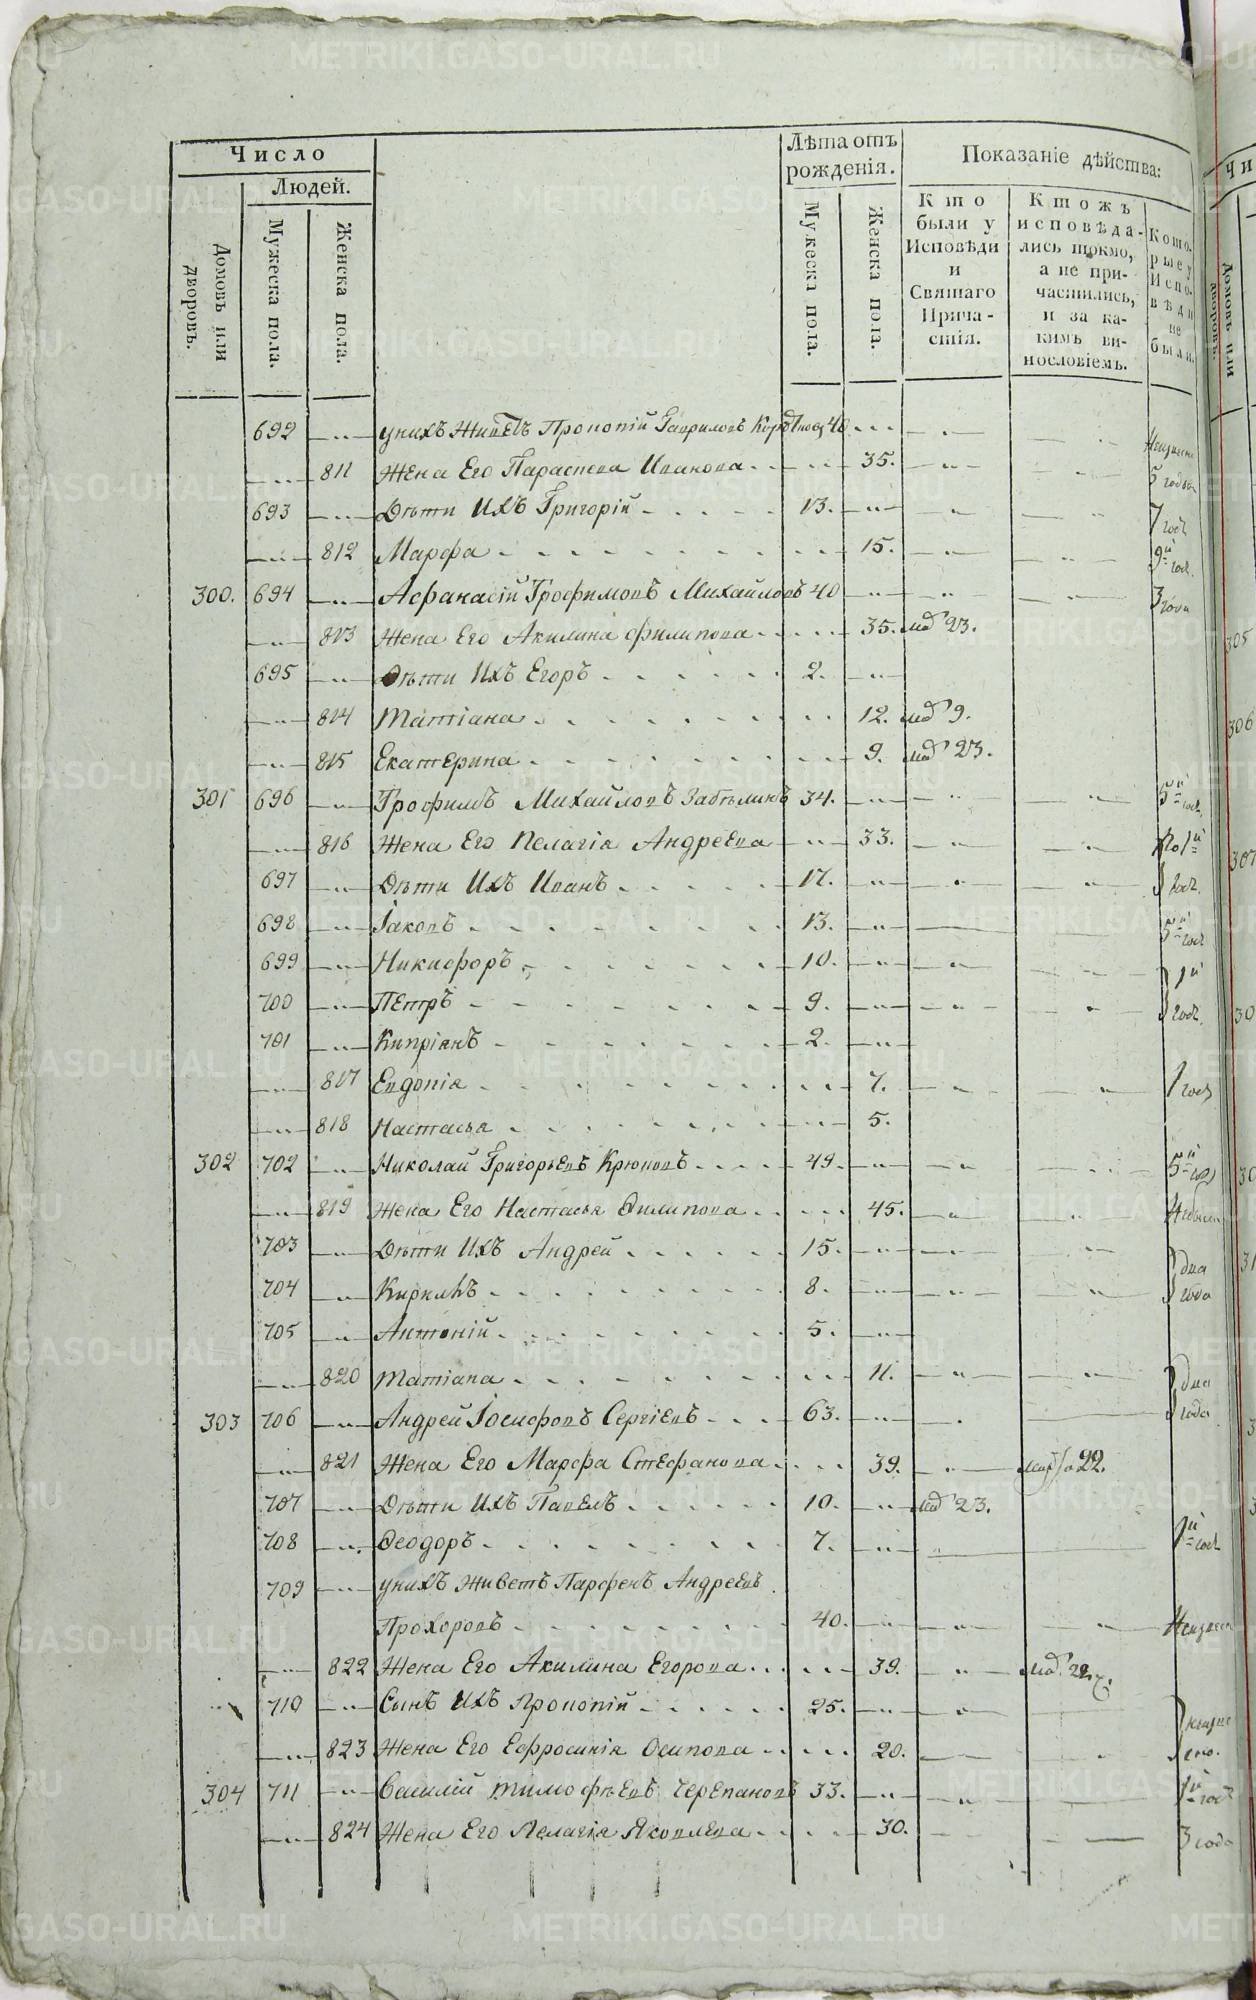 Число
Людей.
Домовъ или дворовъ.
Мужеска пола.
Женска пола.
Лѣта отъ рожденія.
Мужеска пола.
Женска пола.
Показаніе дѣйства:
Кто были у Исповѣди и Святаго Причастія.
Ктожъ исповѣдались токмо, а не причастились, и за какимъ винословіемъ.
Которые у Исповѣди не были.
692 унихъ Живетъ Прокопій Гавриловъ 40
811 Жена Его Параскева Иванова 35. 5
693 Дѣти Ихъ Григорій 13. 7 годъ
812 Марфа 15. 9й год.
300. 694 Афанасій Трофимовъ Михайловъ 40 3 года
813 Жена Его Акилина Филипова 35. 23.
695 Дѣти Ихъ Егоръ 2.
814 Татіана 12. 9.
815 Екатерина 9. 23.
301 696 Трофимъ Михайловъ Забѣлинъ 34. 5й год.
816 Жена Его Пелагія Андреева 33.
697 Дѣти Ихъ Иванъ 17. год.
698 Іаковъ 13. 5й год
699 Никифоръ 10. 1й
700 Петръ 9. год.
701 Кипріанъ 2.
817 Евдокія 7. 1 годъ
818 Настасья 5.
302 702 Николай Григорьевъ Крюковъ 49. 5й
819 Жена Его Настасья Филипова 45.
703 Дѣти Ихъ Андрей 15. два
704 Кирилъ 8. года
705 Антоній 5.
820 Татіана 11. два
303 706 Андрей Іосифовъ Сергіевъ 63. года
821 Жена Его Марфа Стефанова 39. 22.
707 Дѣти Ихъ Павелъ 10. 23.
708 Феодоръ 7. 1й год
709 унихъ живетъ Парфенъ Андреевъ
Прохоровъ 40.
822 Жена Его Акилина Егорова 39. 22.
710 Сынъ Ихъ Прокопій 25.
823 Жена Его Ефросинія Осипова 20.
304 711 Василій Тимофѣевъ Черепановъ 33. 1й год
824 Жена Его Пелагія Яковлева 30. 3 года
305
306
307
METRIKI.GASO-URAL.RU